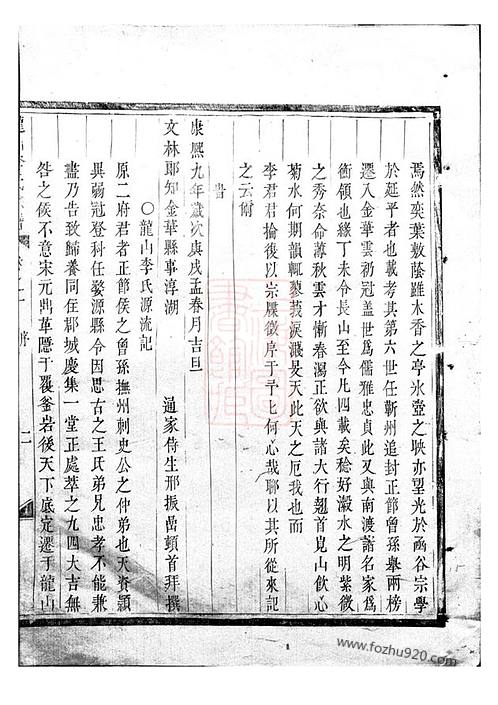 焉然奕葉敷蔭雖木香之亭氷壺之映亦望光於函谷宗學
於延平者也載考其第六世任蘄州追封正節曾孫舉兩榜
遷入金華雲礽冠盖世爲儒雅忠貞此又與南渡諸名家爲
衝領也緣丁未令長山至今凡四載矣稔好瀫水之明紫微
之秀奈命薄秋雲才慚春瀉正欲與諸大行翹首見山飲心
菊水何期韻輒蓼莪淚濺旻天此天之厄我也而
李君君掄後以宗牒徵序于予上何心哉聊以其所從來記
之云爾
旹
康熙九年歲次庚戌孟春月吉旦
文林郎知金華縣事淳湖 通家侍生邢振嵒頓首拜撰
〇龍山李氏源流記
原二府君者正節侯之曾孫撫州刺史公之仲弟也天資穎
異弱冠登科任婺源縣令因思古之王氏弟兄忠孝不能兼
盡乃告致歸養同住郡城慶集一堂正處萃之九四大吉無
咎之候不意宋元鼎革隱于覆釜岩後天下底定遷于龍山
序
二
www.fozhu920.com